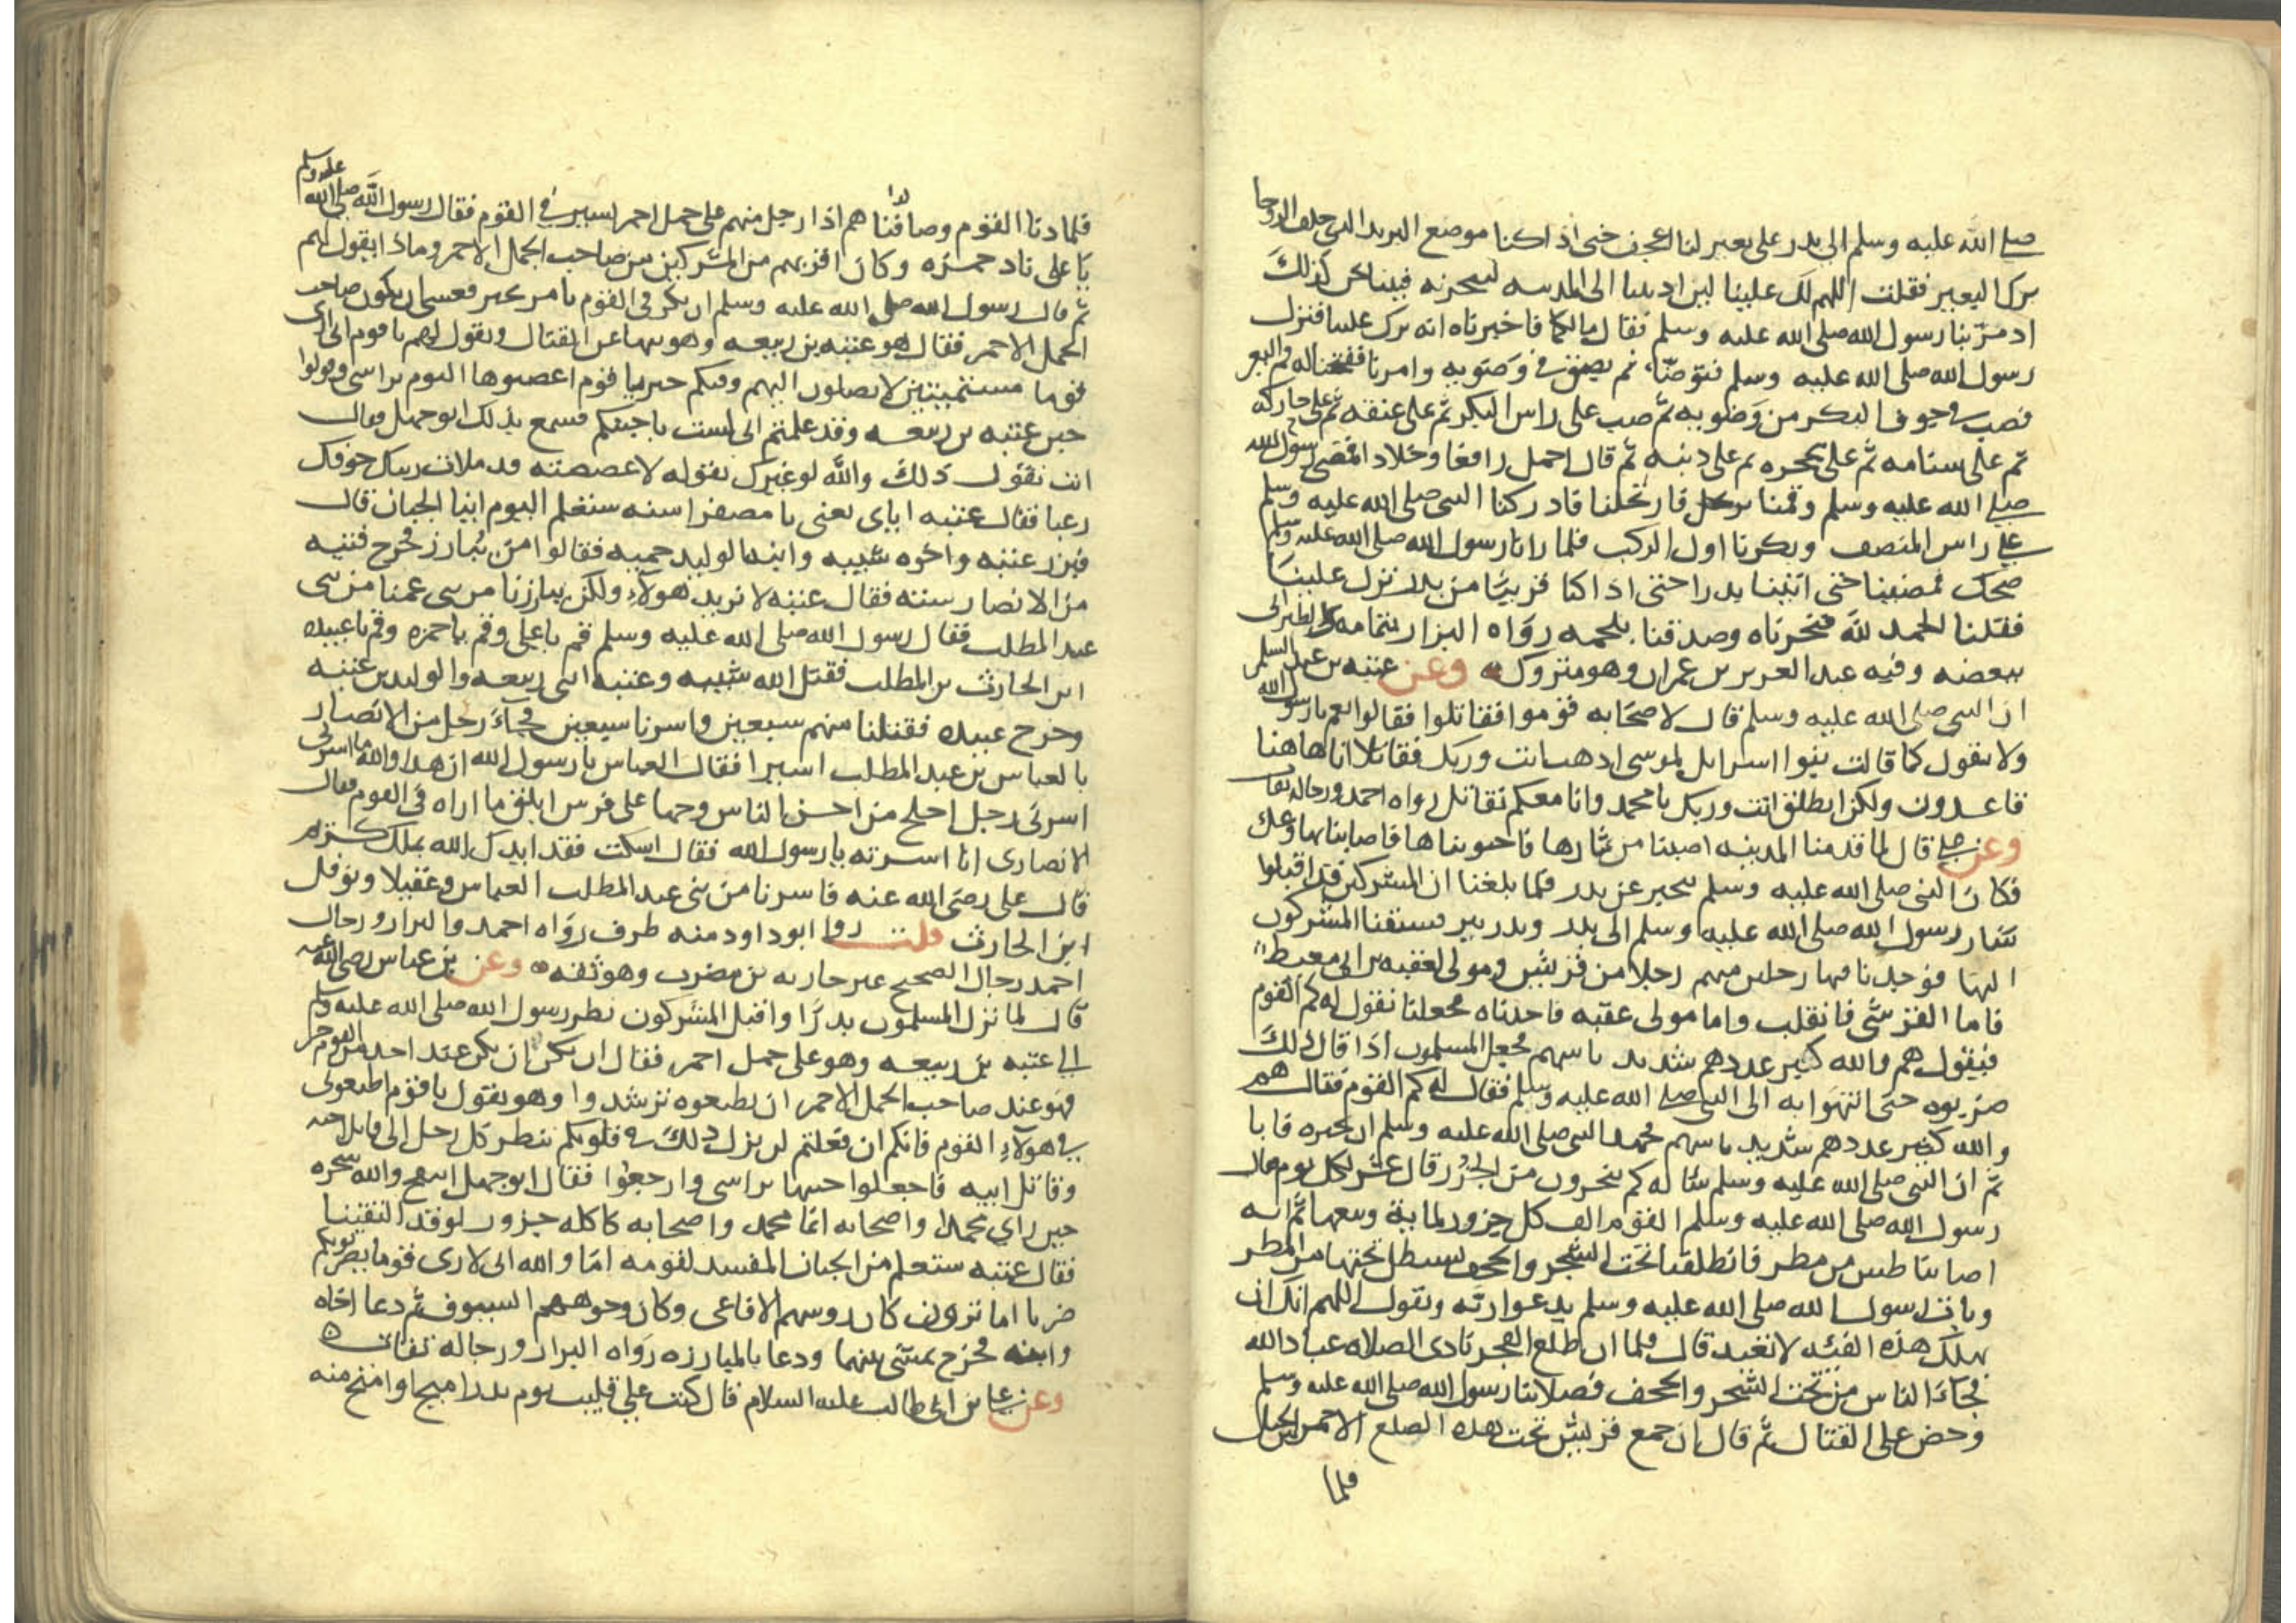 صلى الله عليه وسلم الى بدر على بعير لنا اعجف حتى اذا كنا موضع البريد الذي خلف الروحا
برك البعير فقلت اللهم لك علينا لين اديتنا الى المدينه لننحرنه فبينا نحن كذلك
اذ مر بنا رسول الله صلى الله عليه وسلم فقال مالكما فاخبرناه انه برك علينا فنزل
رسول الله صلى الله عليه وسلم فتوضا ثم بصق في وضويه وامرنا ففتحنا له فم البعير
فصب في جوف البكر من وضويه ثم صب على راس البكر ثم على عنقه ثم على حاركه
ثم على سنامه ثم على عجزه ثم على ذنبه ثم قال احمل رافعا وخلاد افمضى رسول الله
صلى الله عليه وسلم وقمنا نرتحل فارتحلنا فادركنا النبي صلى الله عليه وسلم
على راس المنصف وبكرنا اول الركب فلما رانا رسول الله صلى الله عليه وسلم
ضحك فمضينا حتى اتينا بدرا حتى اذا كنا قريبا من بدر نزل علينا
فقلنا الحمد لله فنحرناه وصدقنا بلحمه رواه البزار بتمامه والطبراني
ببعضه وفيه عبد العزيز بن عمران وهو متروك وعن عتبه بن عبد السلمي
ان النبي صلى الله عليه وسلم قال لاصحابه قوموا فقاتلوا فقالوا نعم يا رسول الله
ولا نقول كما قالت بنوا اسرايل لموسى اذهب انت وربك فقاتلا انا هاهنا
قاعدون ولكن انطلق انت وربك يا محمد وانا معكم نقاتل رواه احمد ورجاله ثقات
وعن علي قال لما قدمنا المدينه اصبنا من ثمارها فاجتويناها فاصابنا بها وعك
فكان النبي صلى الله عليه وسلم يتخبر عن بدر فلما بلغنا ان المشركين قد اقبلوا
سار رسول الله صلى الله عليه وسلم الى بدر وبدر بير فسبقنا المشركون
اليها فوجدنا فيها رجلين منهم رجلا من قريش ومولى لعقبه بن ابي معيط
فاما القرشي فانفلت واما مولى عقبه فاخذناه فجعلنا نقول له كم القوم
فيقول هم والله كثير عددهم شديد باسهم فجعل المسلمون اذا قال ذلك
ضربوه حتى انتهوا به الى النبي صلى الله عليه وسلم فقال له كم القوم فقال هم
والله كثير عددهم شديد باسهم فجهد النبي صلى الله عليه وسلم ان يخبره فابا
ثم ان النبي صلى الله عليه وسلم ساله كم ينحرون من الجزر قال عشر لكل يوم فقال
رسول الله صلى الله عليه وسلم القوم الف كل جزور لماية وتبعها ثم انه
اصابنا طش من مطر فانطلقنا تحت الشجر والحجف نستظل تحتها من المطر
وبات رسول الله صلى الله عليه وسلم يدعوا ربه ويقول اللهم انك ان
تهلك هذه الفئه لا تعبد قال فلما ان طلع الفجر نادى الصلاه عباد الله
فجاء الناس من تحت الشجر والحجف فصلا بنا رسول الله صلى الله عليه وسلم
وحض على القتال ثم قال ان جمع قريش تحت هذه الضلع الاحمر من الجبل
فلما
فلما دنا القوم وصاففناهم اذا رجل منهم على جمل احمر يسير في القوم فقال رسول الله صلى الله عليه وسلم
يا علي ناد حمزه وكان اقربهم من المشركين من صاحب الجمل الاحمر وماذا يقول لهم
ثم قال رسول الله صلى الله عليه وسلم ان يكن في القوم يامر بخير فعسى ان يكون صاحب
الجمل الاحمر فقال هو عتبه بن ربيعه وهو ينها عن القتال ويقول لهم يا قوم اني ارى
قوما مستميتين لا تصلون اليهم وفيكم خير يا قوم اعصبوها اليوم براسي وقولوا
جبن عتبه بن ربيعه وقد علمتم اني لست باجبنكم فسمع بذلك ابو جهل فقال
انت تقول ذلك والله لو غيرك يقوله لاعضضته قد ملات ريتك جوفك
رعبا فقال عتبه اياي تعني يا مصفر استه ستعلم اليوم اينا الجبان قال
فبرز عتبه واخوه شيبه وابنه الوليد حميه فقالوا من يبارز فخرج فتيه
من الانصار سته فقال عتبه لا نريد هولاء ولكن يبارزنا من بني عمنا من بني
عبد المطلب فقال رسول الله صلى الله عليه وسلم قم يا علي وقم يا حمزه وقم يا عبيده
ابن الحارث بن المطلب فقتل الله شيبه وعتبه ابني ربيعه والوليد بن عتبه
وجرح عبيده فقتلنا منهم سبعين واسرنا سبعين فجاء رجل من الانصار
بالعباس بن عبد المطلب اسيرا فقال العباس يا رسول الله ان هذا والله ما اسرني
اسرني رجل اجلح من احسن الناس وجها على فرس ابلق ما اراه في القوم فقال
الانصاري انا اسرته يا رسول الله فقال اسكت فقد ايدك الله بملك كريم
قال علي رضي الله عنه فاسرنا من بني عبد المطلب العباس وعقيلا ونوفل
ابن الحارث قلت روا ابو داود منه طرف رواه احمد والبزار ورجال
احمد رجال الصحيح غير حارثه بن مضرب وهو ثقه وعن بن عباس رضي الله عنه
قال لما نزل المسلمون بدرا واقبل المشركون نظر رسول الله صلى الله عليه وسلم
الى عتبه بن ربيعه وهو على جمل احمر فقال ان يكن عند احد من القوم خير
فهو عند صاحب الجمل الاحمر ان يطيعوه يرشدوا وهو يقول يا قوم اطيعوني
في هولاء القوم فانكم ان فعلتم لن يزل ذلك في قلوبكم ينظر كل رجل الى قاتل اخيه
وقاتل ابيه فاجعلوا جبنها براسي وارجعوا فقال ابو جهل انتفخ والله سحره
حين راي محمدا واصحابه انما محمد واصحابه كاكله جزور لو قد التقينا
فقال عتبه ستعلم من الجبان المفسد لقومه اما والله اني لارى قوما يضربونكم
ضربا اما ترون كان روسهم الافاعي وكان وجوههم السيوف ثم دعا اخاه
وابنه فخرج يمشي بينهما ودعا بالمبارزه رواه البزار ورجاله ثقات
وعن علي بن ابي طالب عليه السلام قال كنت على قليب يوم بدر اميح او امتح منه